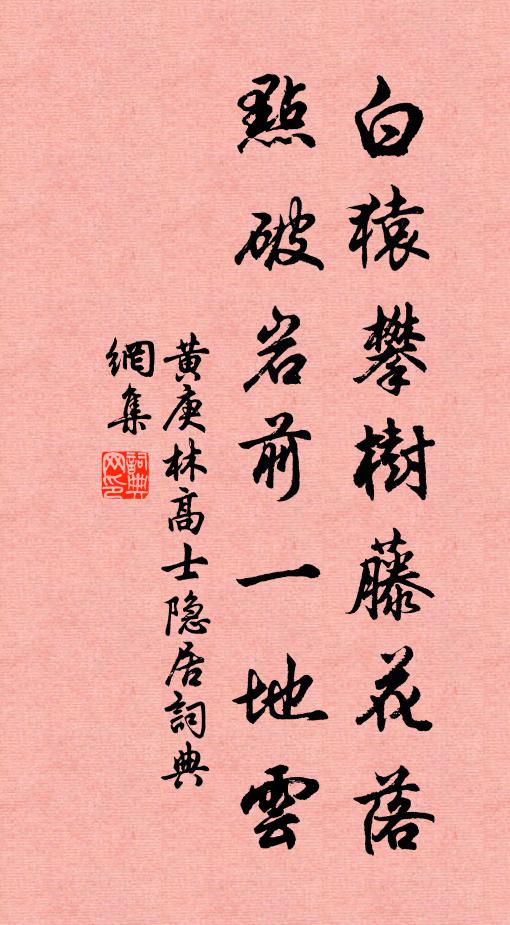 白猿攀樹藤花落
點破岩前一地雲
黄庚林高士隐居詞典
網集
詞典網印